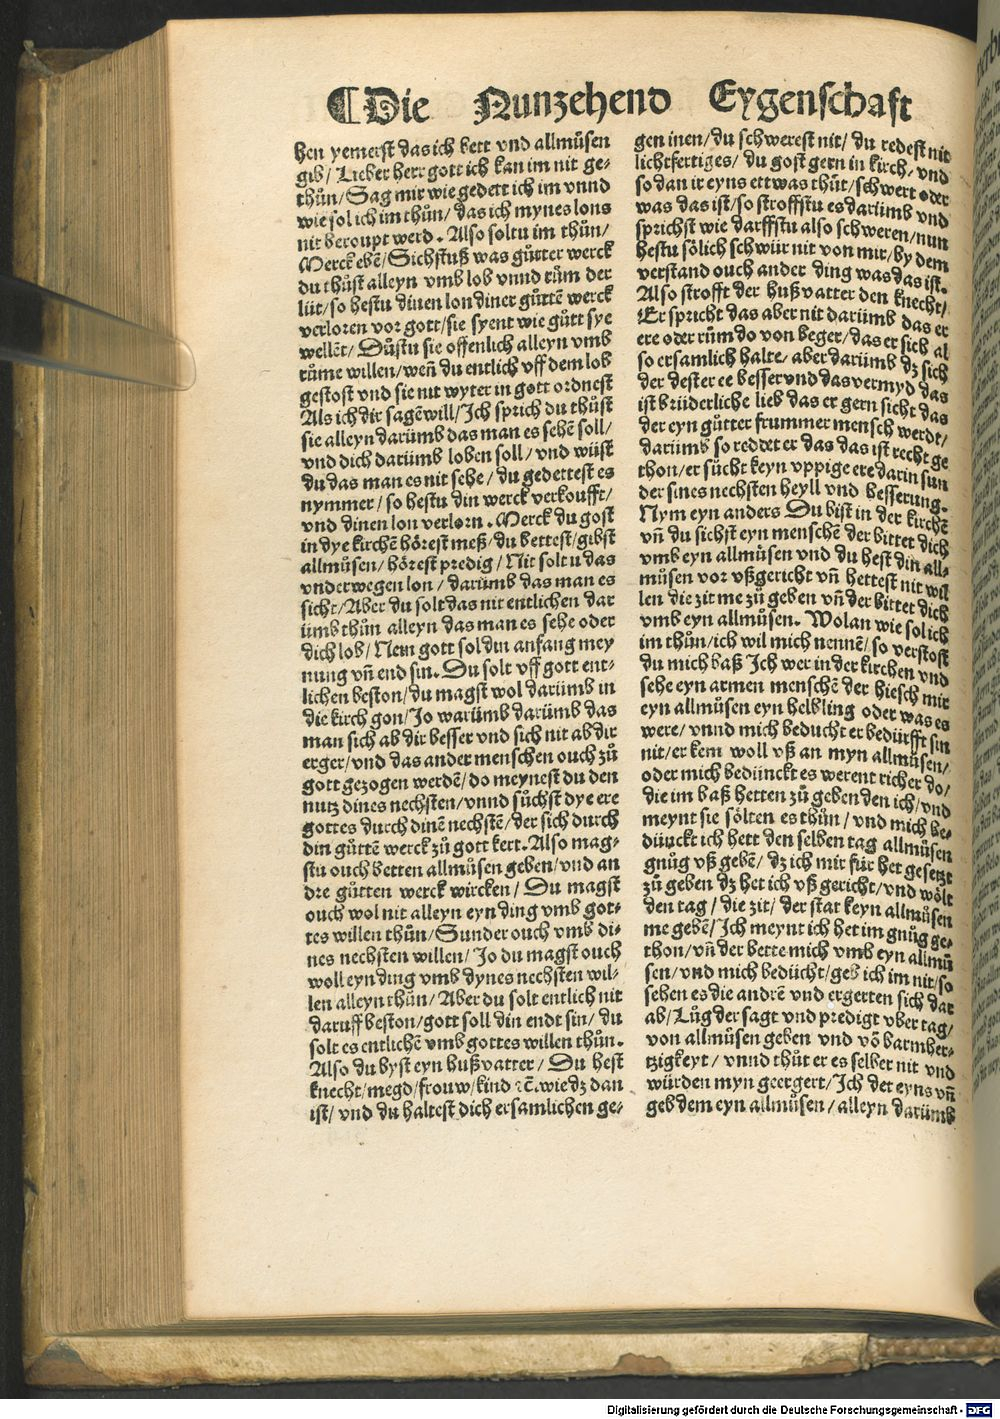 ¶Die Nunzehend Eygenschaft
hen yemerst das ich bett vnd allmůsen
gib/ Lieber herr gott ich kan im nit ge-
thůn/ Sag mir wie gedett ich im vnnd
wie sol ich im thůn/ das ich mynes lons
nit beroupt werd. Also soltu im thůn/
Merck ebē/ Sichstuß was gůtter werck
du thůst alleyn vmb lob vnnd rům der
lüt/ so hestu dinen lon diner gůttē werck
verloren vor gott/ sie syent wie gůtt sye
wellēt/ Důstu sie offenlich alleyn vmb
růme willen/ weñ du entlich vff dem lob
gestost vnd sie nit wyter in gott ordnest
Als ich dir sagē will/ Ich sprich du thůst
sie alleyn darümb das man es sehē soll/
vnd dich darümb loben soll/ vnd wüst
du das man es nit sehe/ du gedettest es
nymmer/ so hestu din werck verkoufft/
vnd dinen lon verlorn. Merck du gost
in dye kirchē hörest meß/ du bettest/ gibst
allmůsen/ hörest predig/ Nit solt u das
vnderwegen lon/ darümb das man es
sicht/ Aber du solt das nit entlichen dar
ümb thůn alleyn das man es sehe oder
dich lob/ Nein gott sol din anfang mey
nung vñ end sin. Du solt vff gott ent-
lichen beston/ du magst wol darümb in
die kirch gon/ Jo warümb darümb das
man sich ab dir besser vnd sich nit ab dir
erger/ vnd das ander menschen ouch zů
gott gezogen werdē/ do meynest du den
nutz dines nechsten/ vnnd sůchst dye ere
gottes durch dinē nechstē/ der sich durch
din gůttē werck zů gott kert. Also mag-
stu ouch betten allmůsen geben/ vnd an
dre gůtten werck wircken/ Du magst
ouch wol nit alleyn eyn ding vmb got-
tes willen thůn/ Sunder ouch vmb di-
nes nechsten willen/ Jo du magst ouch
woll eyn ding vmb dynes nechsten wil-
len alleyn thůn/ Aber du solt entlich nit
daruff beston/ gott soll din endt sin/ du
solt es entlichē vmb gottes willen thůn.
Also du byst eyn hußvatter/ Du hest
knecht/ megd/ frouw/ kind ⁊c̄. wie dz dan
ist/ vnd du haltest dich ersamlichen ge-
gen inen/ du schwerest nit/ du redest nit
lichtfertiges/ du gost gern in kirch/ vnd
so dan ir eyns ettwas thůt/ schwert oder
was das ist/ so stroffstu es darümb vnd
sprichst wie darffstu also schweren/ nun
hestu sölich schwür nit von mir/ by dem
verstand ouch ander ding was das ist.
Also strofft der hußvatter den knecht/
Er spricht das aber nit darümb das er
ere oder rům do von beger/ das er sich al
so ersamlich halte/ aber darümb dz sich
der dester ee besser vnd das vermyd das
ist brüderliche lieb das er gern sicht das
der eyn gůtter frummer mensch werdt/
darümb so reddet er das das ist recht ge
thon/ er sůcht keyn vppige ere darin sun
der sines nechsten heyll vnd besserung.
Nym eyn anders Du bist in der kirchē
vñ du sichst eyn menschē der bittet dich
vmb eyn allmůsen vnd du hest din all-
můsen vor vßgericht vñ hettest nit wil
len die zit me zů geben vñ der bittet dich
vmb eyn allmůsen. Wolan wie sol ich
im thůn/ ich wil mich nennē/ so verstost
du mich baß Ich wer in der kirchen vnd
sehe eyn armen menschē der hiesch mir
eyn allmůsen eyn helbling oder was es
were/ vnnd mich beducht er bedürfft sin
nit/ er kem woll vß an myn allmůsen/
oder mich bedünckt es werent richer do/
die im baß hetten zů geben den ich/ vnd
meynt sie sölten es thůn/ vnd mich be-
dünckt ich hett den selben tag allmůsen
gnůg vß gebē/ dz ich mir für het gesetzt
zů geben dz het ich vß gericht/ vnd wölt
den tag/ die zit/ der stat keyn allmůsen
me gebē/ Ich meynt ich het im gnůg ge-
thon/ vñ der bette mich vmb eyn allmů
sen/ vnd mich bedücht/ geb ich im nit/ so
sehen es die andrē vnd ergerten sich dar
ab/ Lůg der sagt vnd predigt vber tag/
von allmůsen geben vnd vō barmher-
tzigkeyt/ vnnd thůt er es selber nit vnd
würden myn geergert/ Ich det eyns vñ
geb dem eyn allmůsen/ alleyn darümb
Digitalisierung gefördert durch die Deutsche Forschungsgemeinschaft - DFG